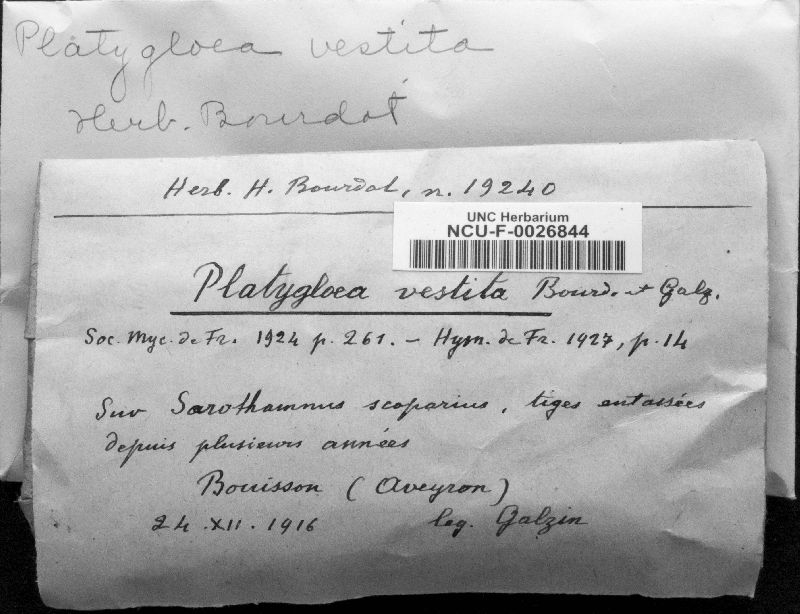 Platygloea vestita
Herb. Bourdot
Herb. H. Bourdot, n. 19240
UNC Herbarium
NCU-F-0026844
Platygloea vestita Bourd. et Galz.
Soc. Myc. de Fr. 1924 p. 261. – Hym. de Fr. 1927, p. 14
Sur Sarothamnus scoparius, tiges entassées
depuis plusieurs années
Bouisson (Aveyron)
24.XII.1916 leg. Galzin